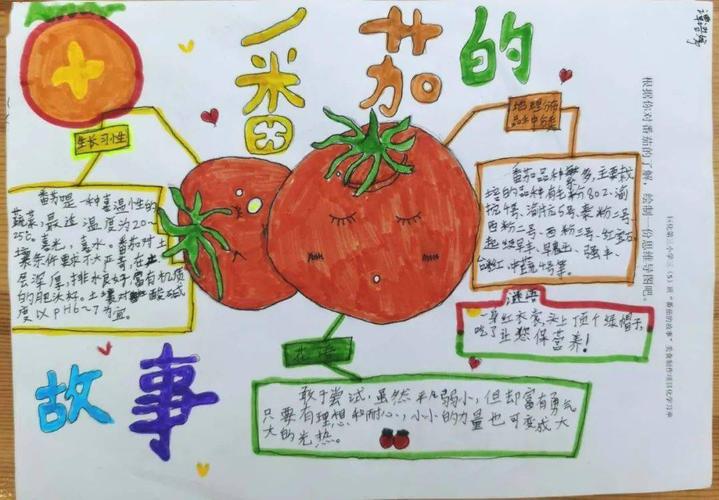 番茄的
故事
生长习性
番茄是一种喜温性的
蔬菜,最适温度为20~
25℃。喜光,喜水。番茄对土
壤条件要求不太严苛,在土
层深厚,排水良好,富有机质
的肥沃
土壤
酸碱
度以PH6~7为宜。
品种
番茄品种繁多,主要栽
培的品种有毛粉802、
西粉二号、西粉三号、
早魁、强丰、
中蔬 号等。
谜语
一身红衣裳,头上顶个绿帽子,
吃了让您保营养!
花语
敢于尝试,虽然平凡弱小,但却富有勇气
只要有理想和耐心,小小的力量也可变成大
大的光热。
根据你对番茄的了解,绘制一份思维导图吧。
第三小学三(5)班“番茄的故事”美食制作项目化学习单